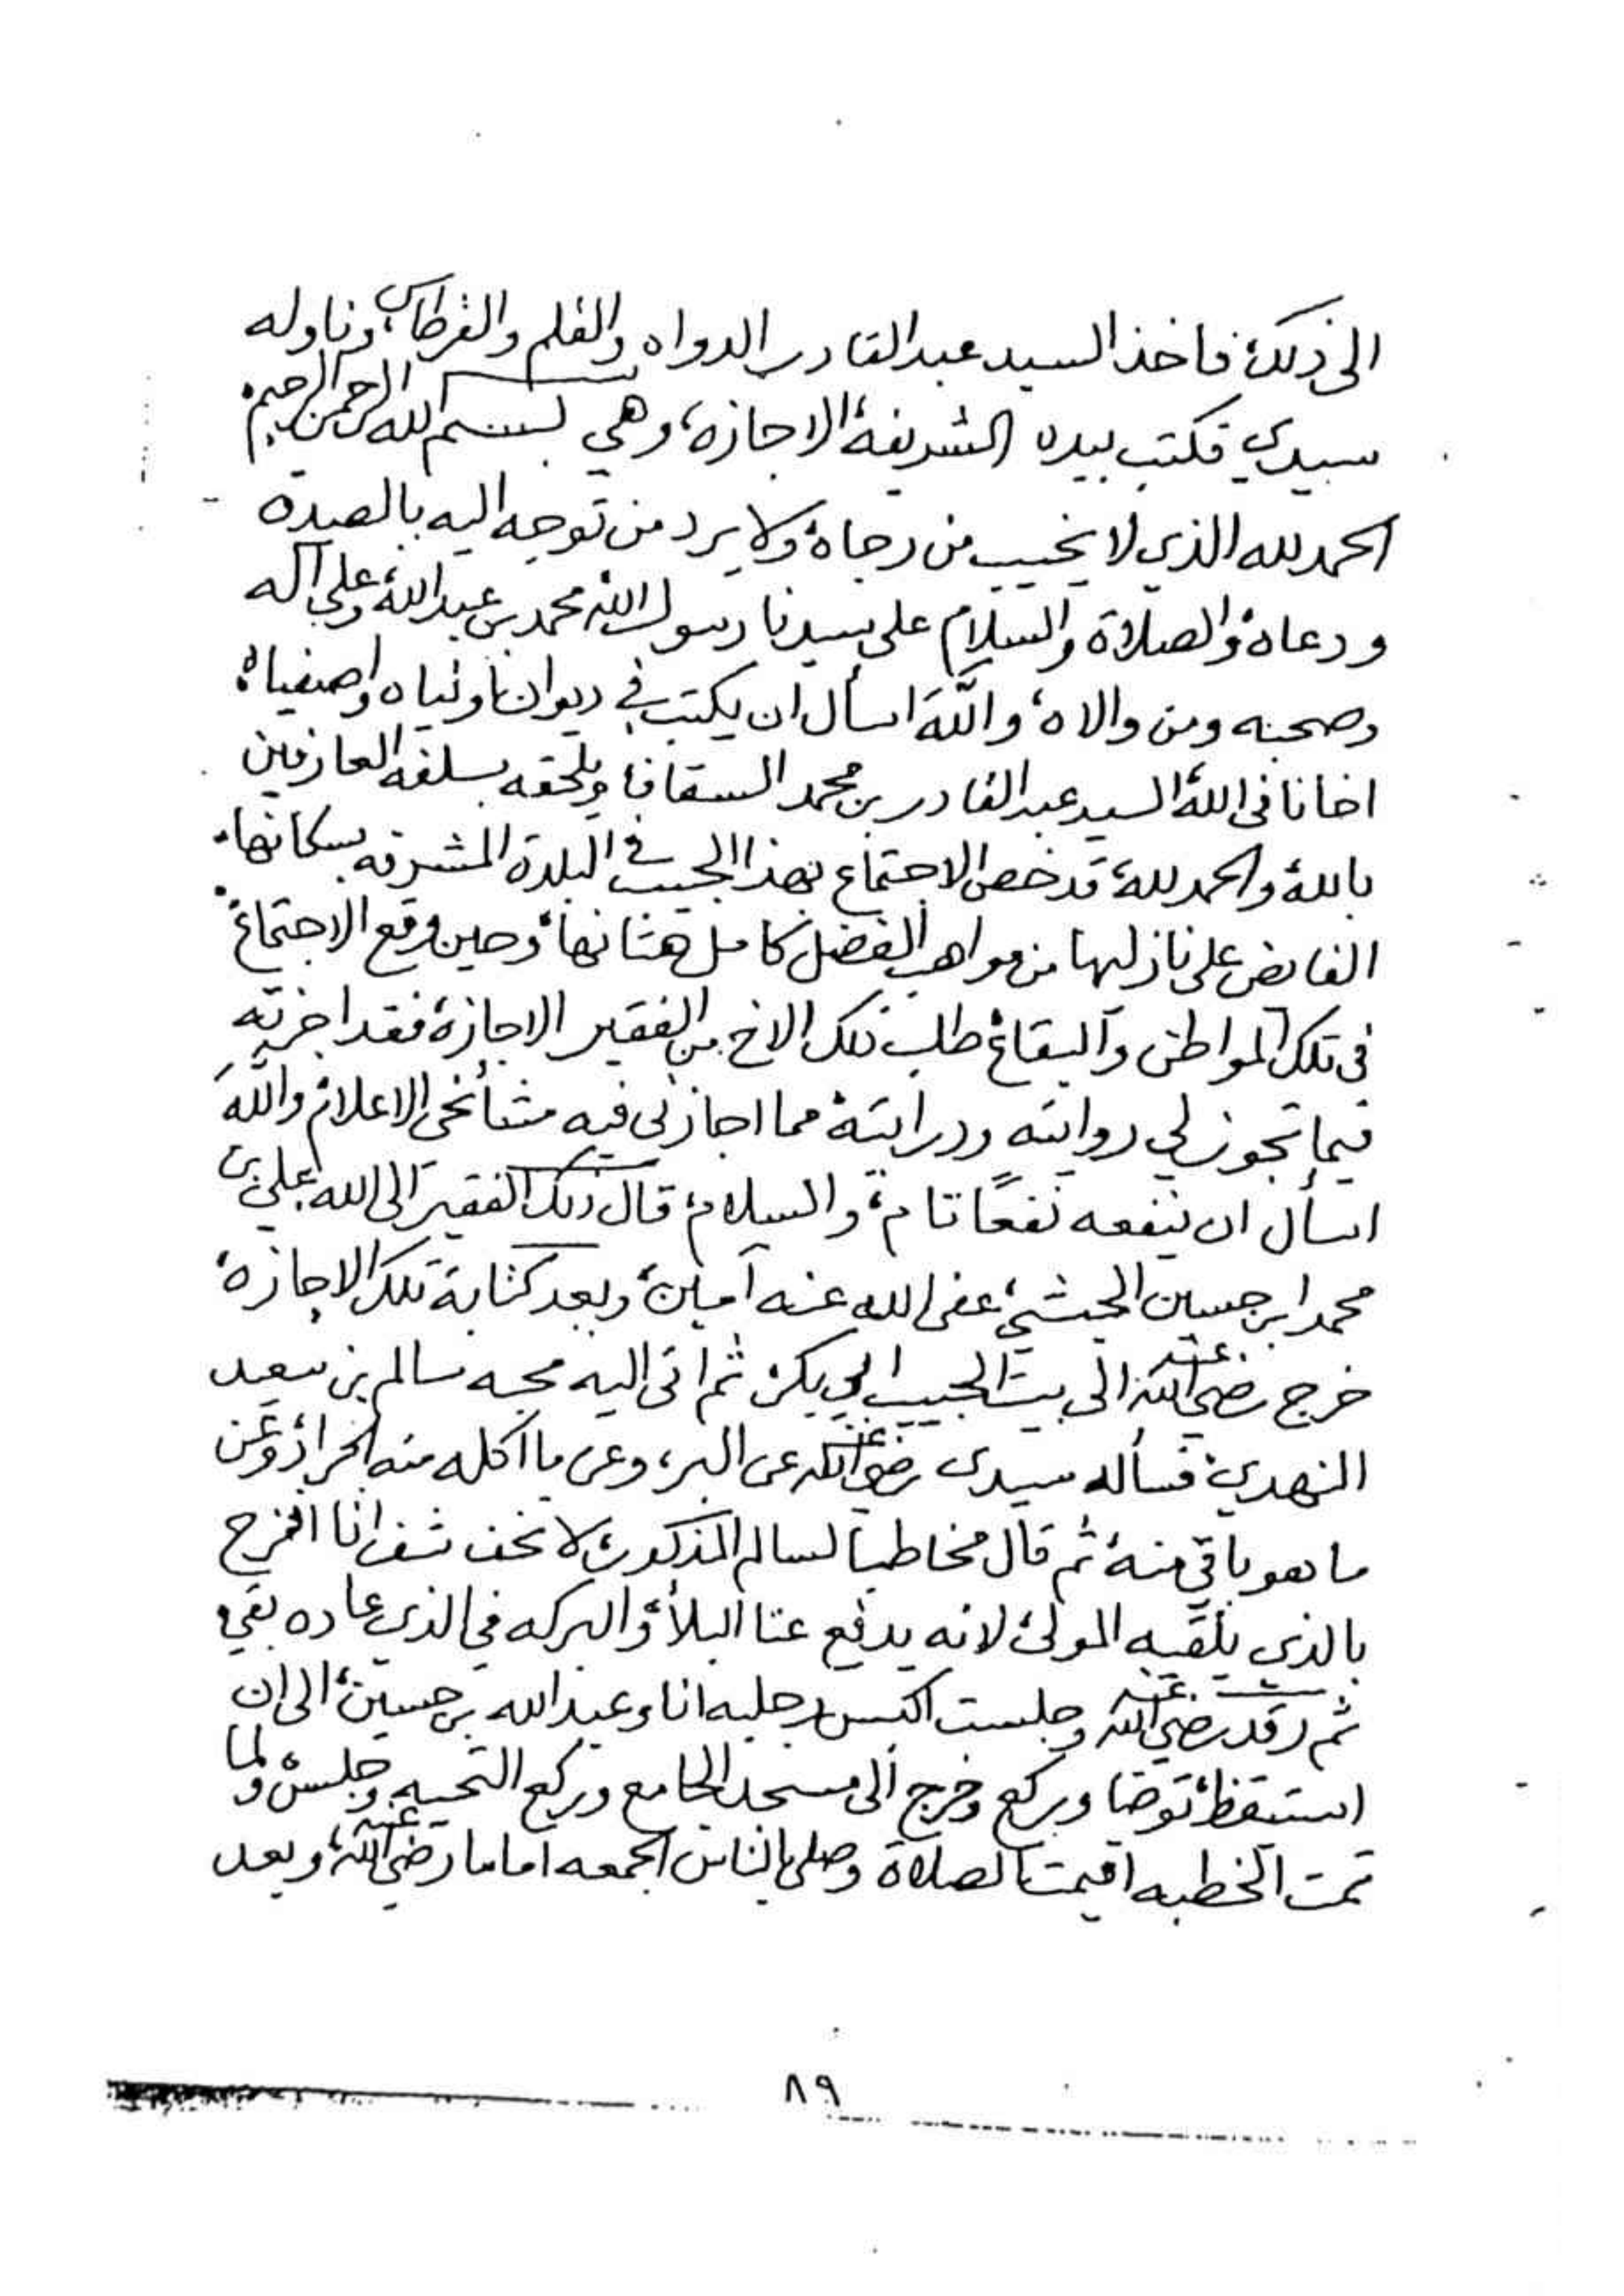 الى ذلك، فاخذ السيد عبدالقادر الدواه والقلم والقرطاس، وناوله
سيدي فكتب بيده الشريفة الاجازة، وهي بسم الله الرحمن الرحيم،
الحمد لله الذي لا يخيب من رجاه، ولا يرد من توجه اليه بالصدق
ودعاه، والصلاة والسلام على سيدنا رسول الله محمد بن عبدالله، وعلى آله
وصحبه ومن والاه، واللهَ اسأل ان يكتب في ديوان اولياه واصفياه،
اخانا في الله، السيد عبدالقادر بن محمد السقاف، ويلحقه بسلفه العارفين
بالله، والحمد لله، قد حصل الاجتماع بهذا الحبيب في البلدة المشرفه بسكانها،
الفايض على نازلها من مواهب الفضل كامل هتانها، وحين وقع الاجتماع،
في تلك المواطن والبقاع، طلب ذلك الاخ من الفقير الاجازة، فقد اجزته
فيما تجوز لي روايته ودرايته، مما اجازني فيه مشائخي الاعلام، واللهَ
اسأل ان ينفعه نفعًا تام، والسلام، قال ذلك الفقير الى الله علي بن
محمد ابن حسين الحبشي، عفى الله عنه آمين، وبعد كتابة تلك الاجازة،
خرج رضي الله عنه الى بيت الحبيب ابي بكر، ثم اتى اليه محبه سالم بن سعيد
النهدي، فسأله سيدي رضي الله عنه عن البر، وعن ما اكله منه الجراد، وعن
ما هو باقي منه، ثم قال مخاطباً لسالم المذكور، لا تخف شف انا افرح
بالذي يلقيه المولى، لانه يدفع عنا البلاء، والبركه في الذي عاده بقي،
ثم رقد رضي الله عنه وجلست اكبس رجليه انا وعبدالله بن حسين، الى ان
استيقظ، توضا وركع وخرج الى مسجد الجامع وركع التحيه وجلس، ولما
تمت الخطبه اقيمت الصلاة وصلى بالناس الجمعه اماما رضي الله عنه، وبعد
٨٩